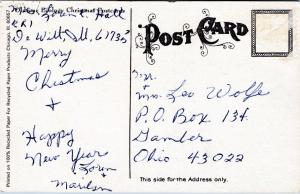 Loren L. Hall
R R 1
De Witt, Ill. 61735
Merry
Christmas
&
Happy
New Year
Loren
&
Marilyn
Printed on 100% Recycled Paper For Recycled Paper Products Chicago, Ill. 60657
POST CARD
Mr.
&
Mrs. Leo Wolfe
P.O. Box 134
Gambier
Ohio 43022
This side for the Address only.